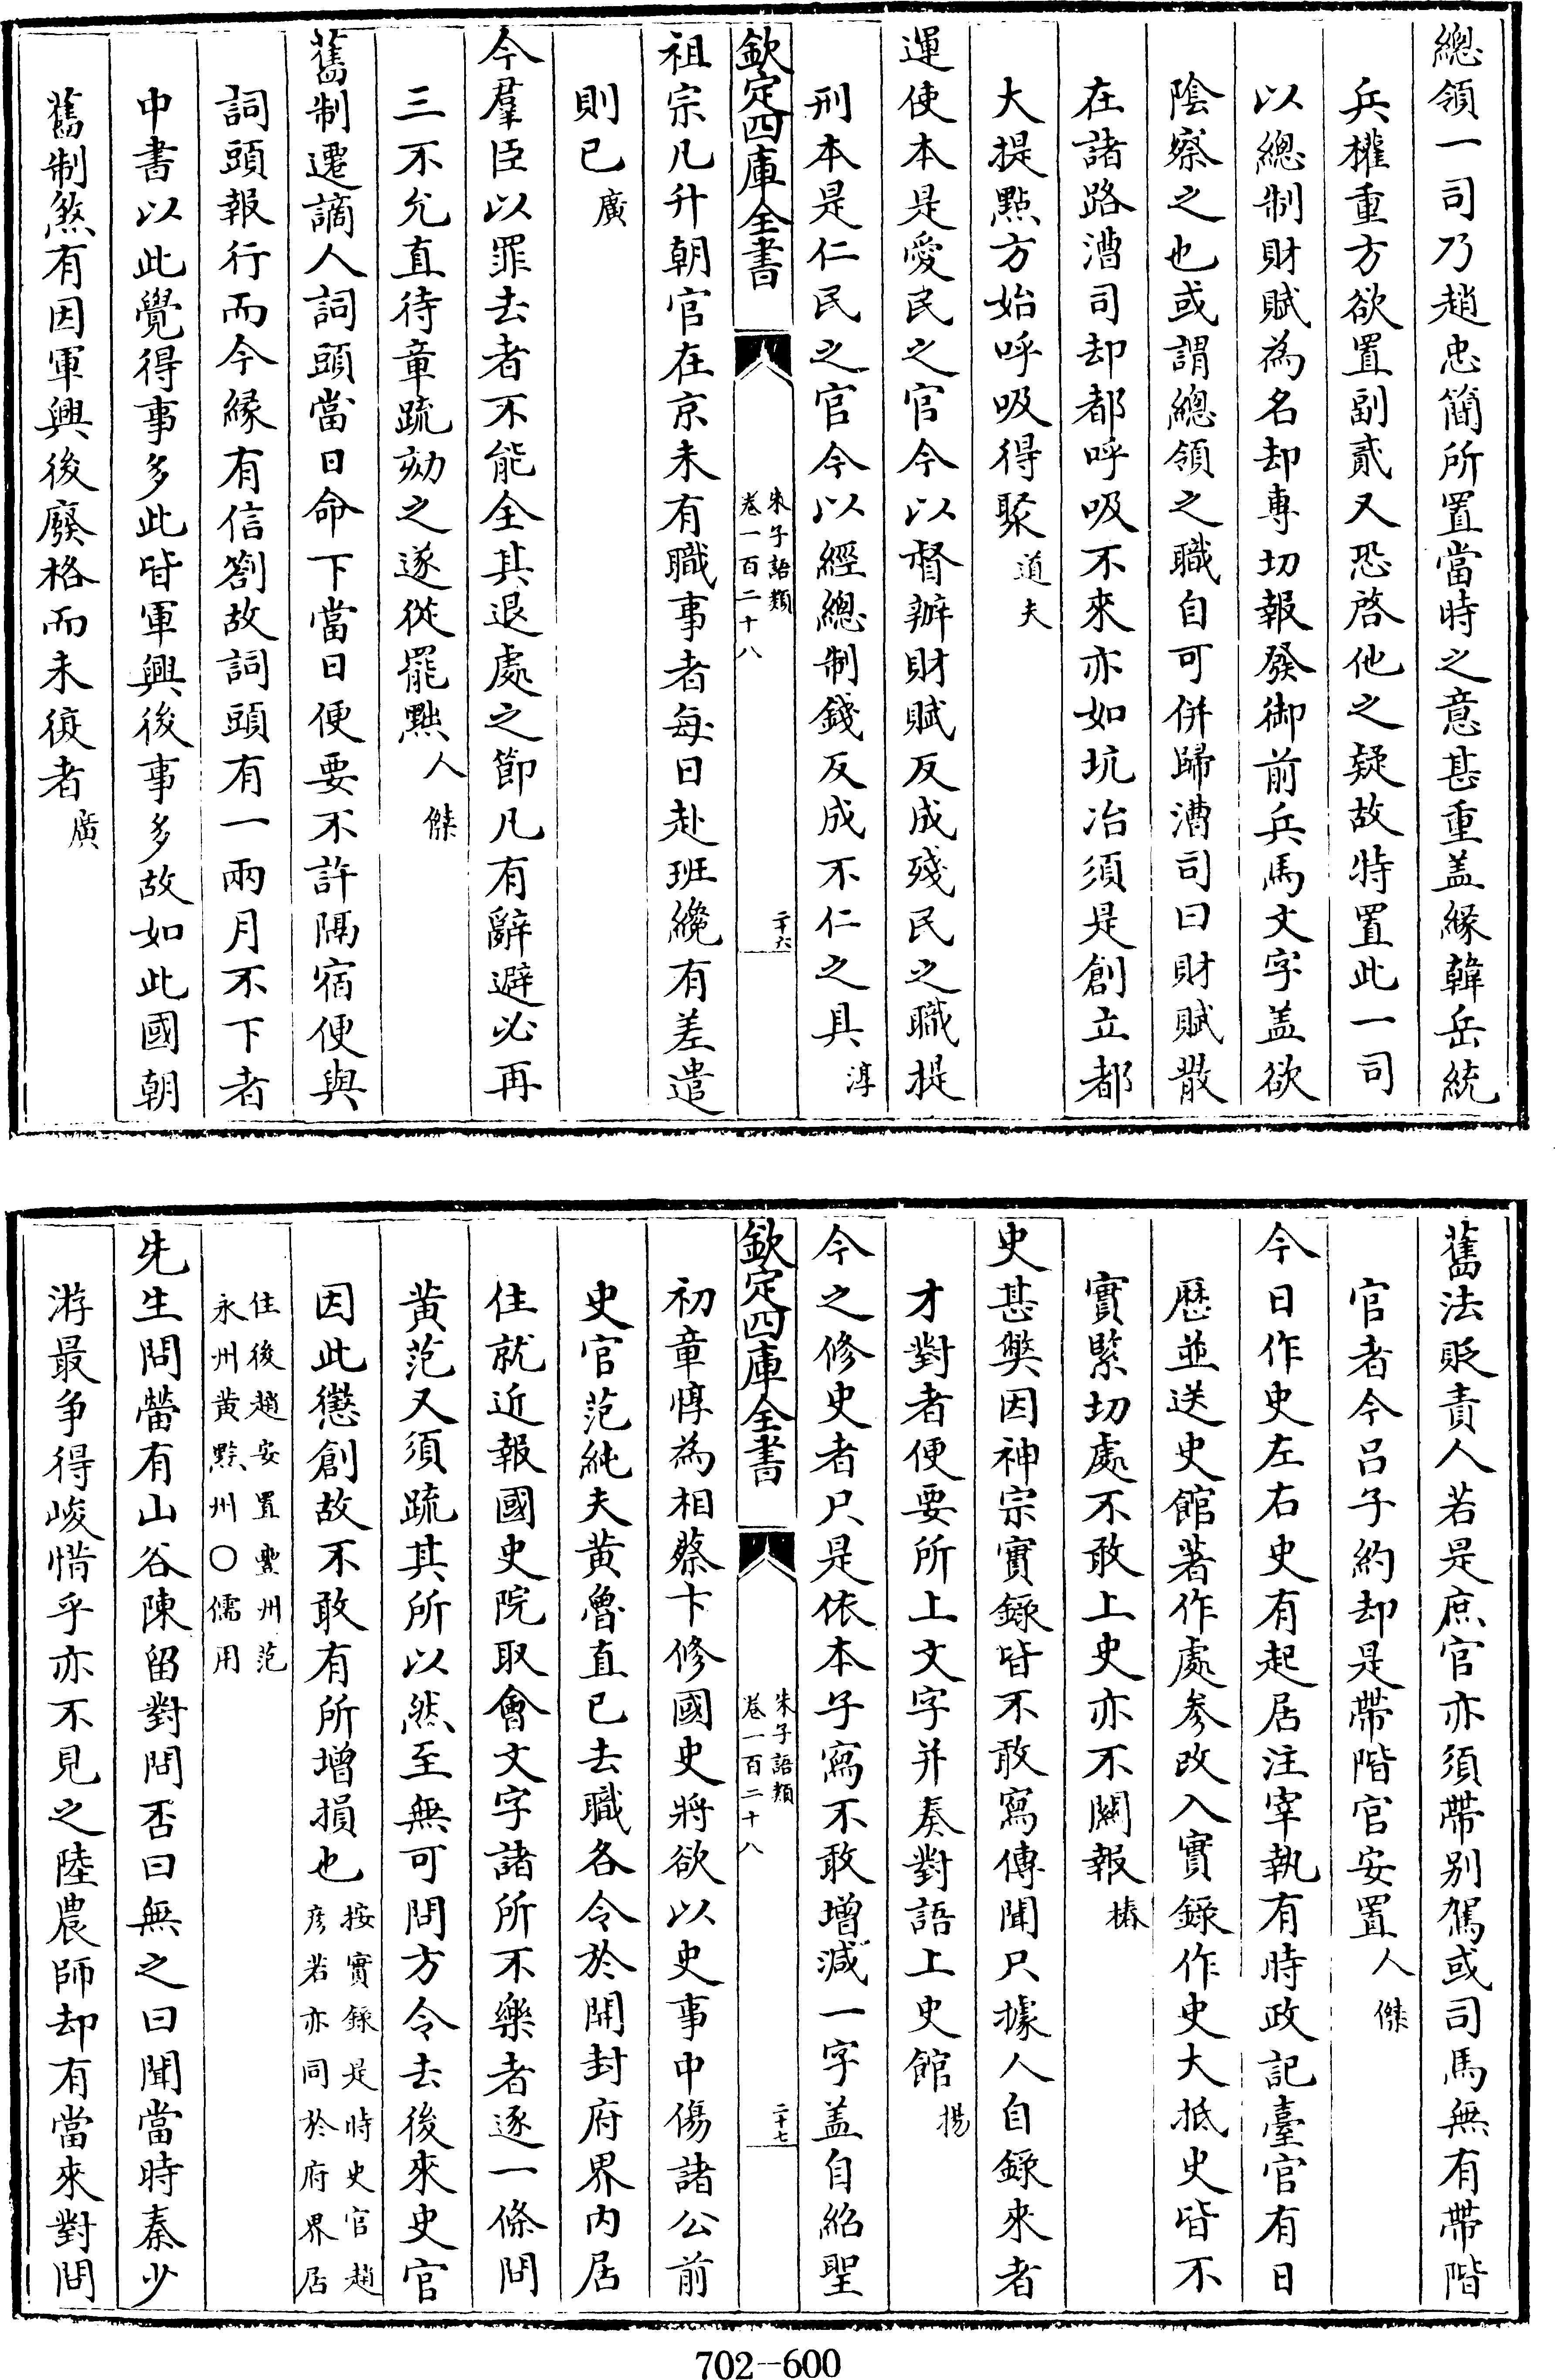 總領一司乃趙忠簡所置當時之意甚重盖緣韓岳統
兵權重方欲置副貳又恐啓他之疑故特置此一司
以總制財賦為名却專切報發御前兵馬文字盖欲
陰察之也或謂總領之職自可併歸漕司曰財賦散
在諸路漕司却都呼吸不來亦如坑冶須是創立都
大提點方始呼吸得聚道夫
運使本是愛民之官今以督辦財賦反成殘民之職提
刑本是仁民之官今以經總制錢反成不仁之具淳
欽定四庫全書
朱子語類
卷一百二十八
二十六
祖宗凡升朝官在京未有職事者每日赴班纔有差遣
則已廣
今羣臣以罪去者不能全其退處之節凡有辭避必再
三不允直待章疏劾之遂從罷黜人傑
舊制遷謫人詞頭當日命下當日便要不許隔宿便與
詞頭報行而今緣有信劄故詞頭有一兩月不下者
中書以此覺得事多此皆軍興後事多故如此國朝
舊制煞有因軍興後廢格而未復者廣
舊法貶責人若是庶官亦須帶别駕或司馬無有帶階
官者今吕子約却是帶階官安置人傑
今日作史左右史有起居注宰執有時政記臺官有日
厯並送史館著作處參改入實錄作史大抵史皆不
實緊切處不敢上史亦不關報椿
史甚獘因神宗實錄皆不敢寫傳聞只據人自錄來者
才對者便要所上文字并奏對語上史館揚
今之修史者只是依本子寫不敢增減一字盖自紹聖
欽定四庫全書
朱子語類
卷一百二十八
二十七
初章惇為相蔡卞修國史將欲以史事中傷諸公前
史官范純夫黄魯直已去職各令於開封府界内居
住就近報國史院取㑹文字諸所不樂者逐一條問
黄范又須疏其所以然至無可問方令去後來史官
因此懲創故不敢有所增損也按實錄是時史官趙
彦若亦同於府界居
住後趙安置澧州范
永州黄黔州○儒用
先生問㽦有山谷陳留對問否曰無之曰聞當時秦少
游最争得峻惜乎亦不見之陸農師却有當來對問
702-600